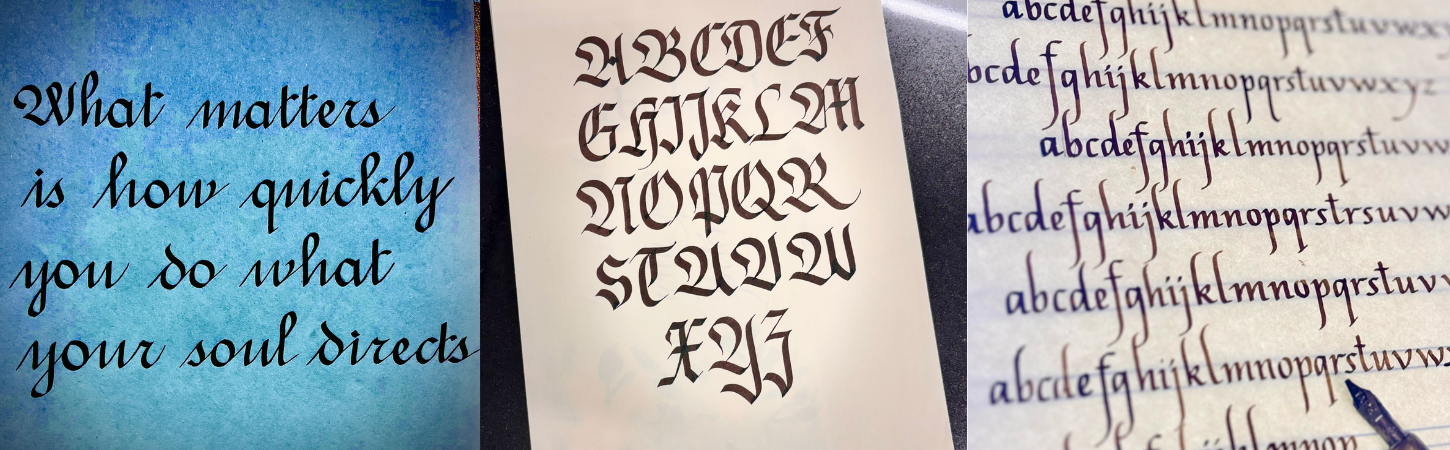 What matters
is how quickly
you do what
your soul directs
ABCDEF
GHIJKLM
NOPQR
STUVW
XYZ
abcdefghijklmnopqrstuvwx
bcdefghijklmnopqrstuvwxyz
abcdefghijklmnopqrstuvw
abcdefghijklmnopqrstrsuvw
abcdefghijklmnopqrstuv
abcdefghijklmnopqrstuvw